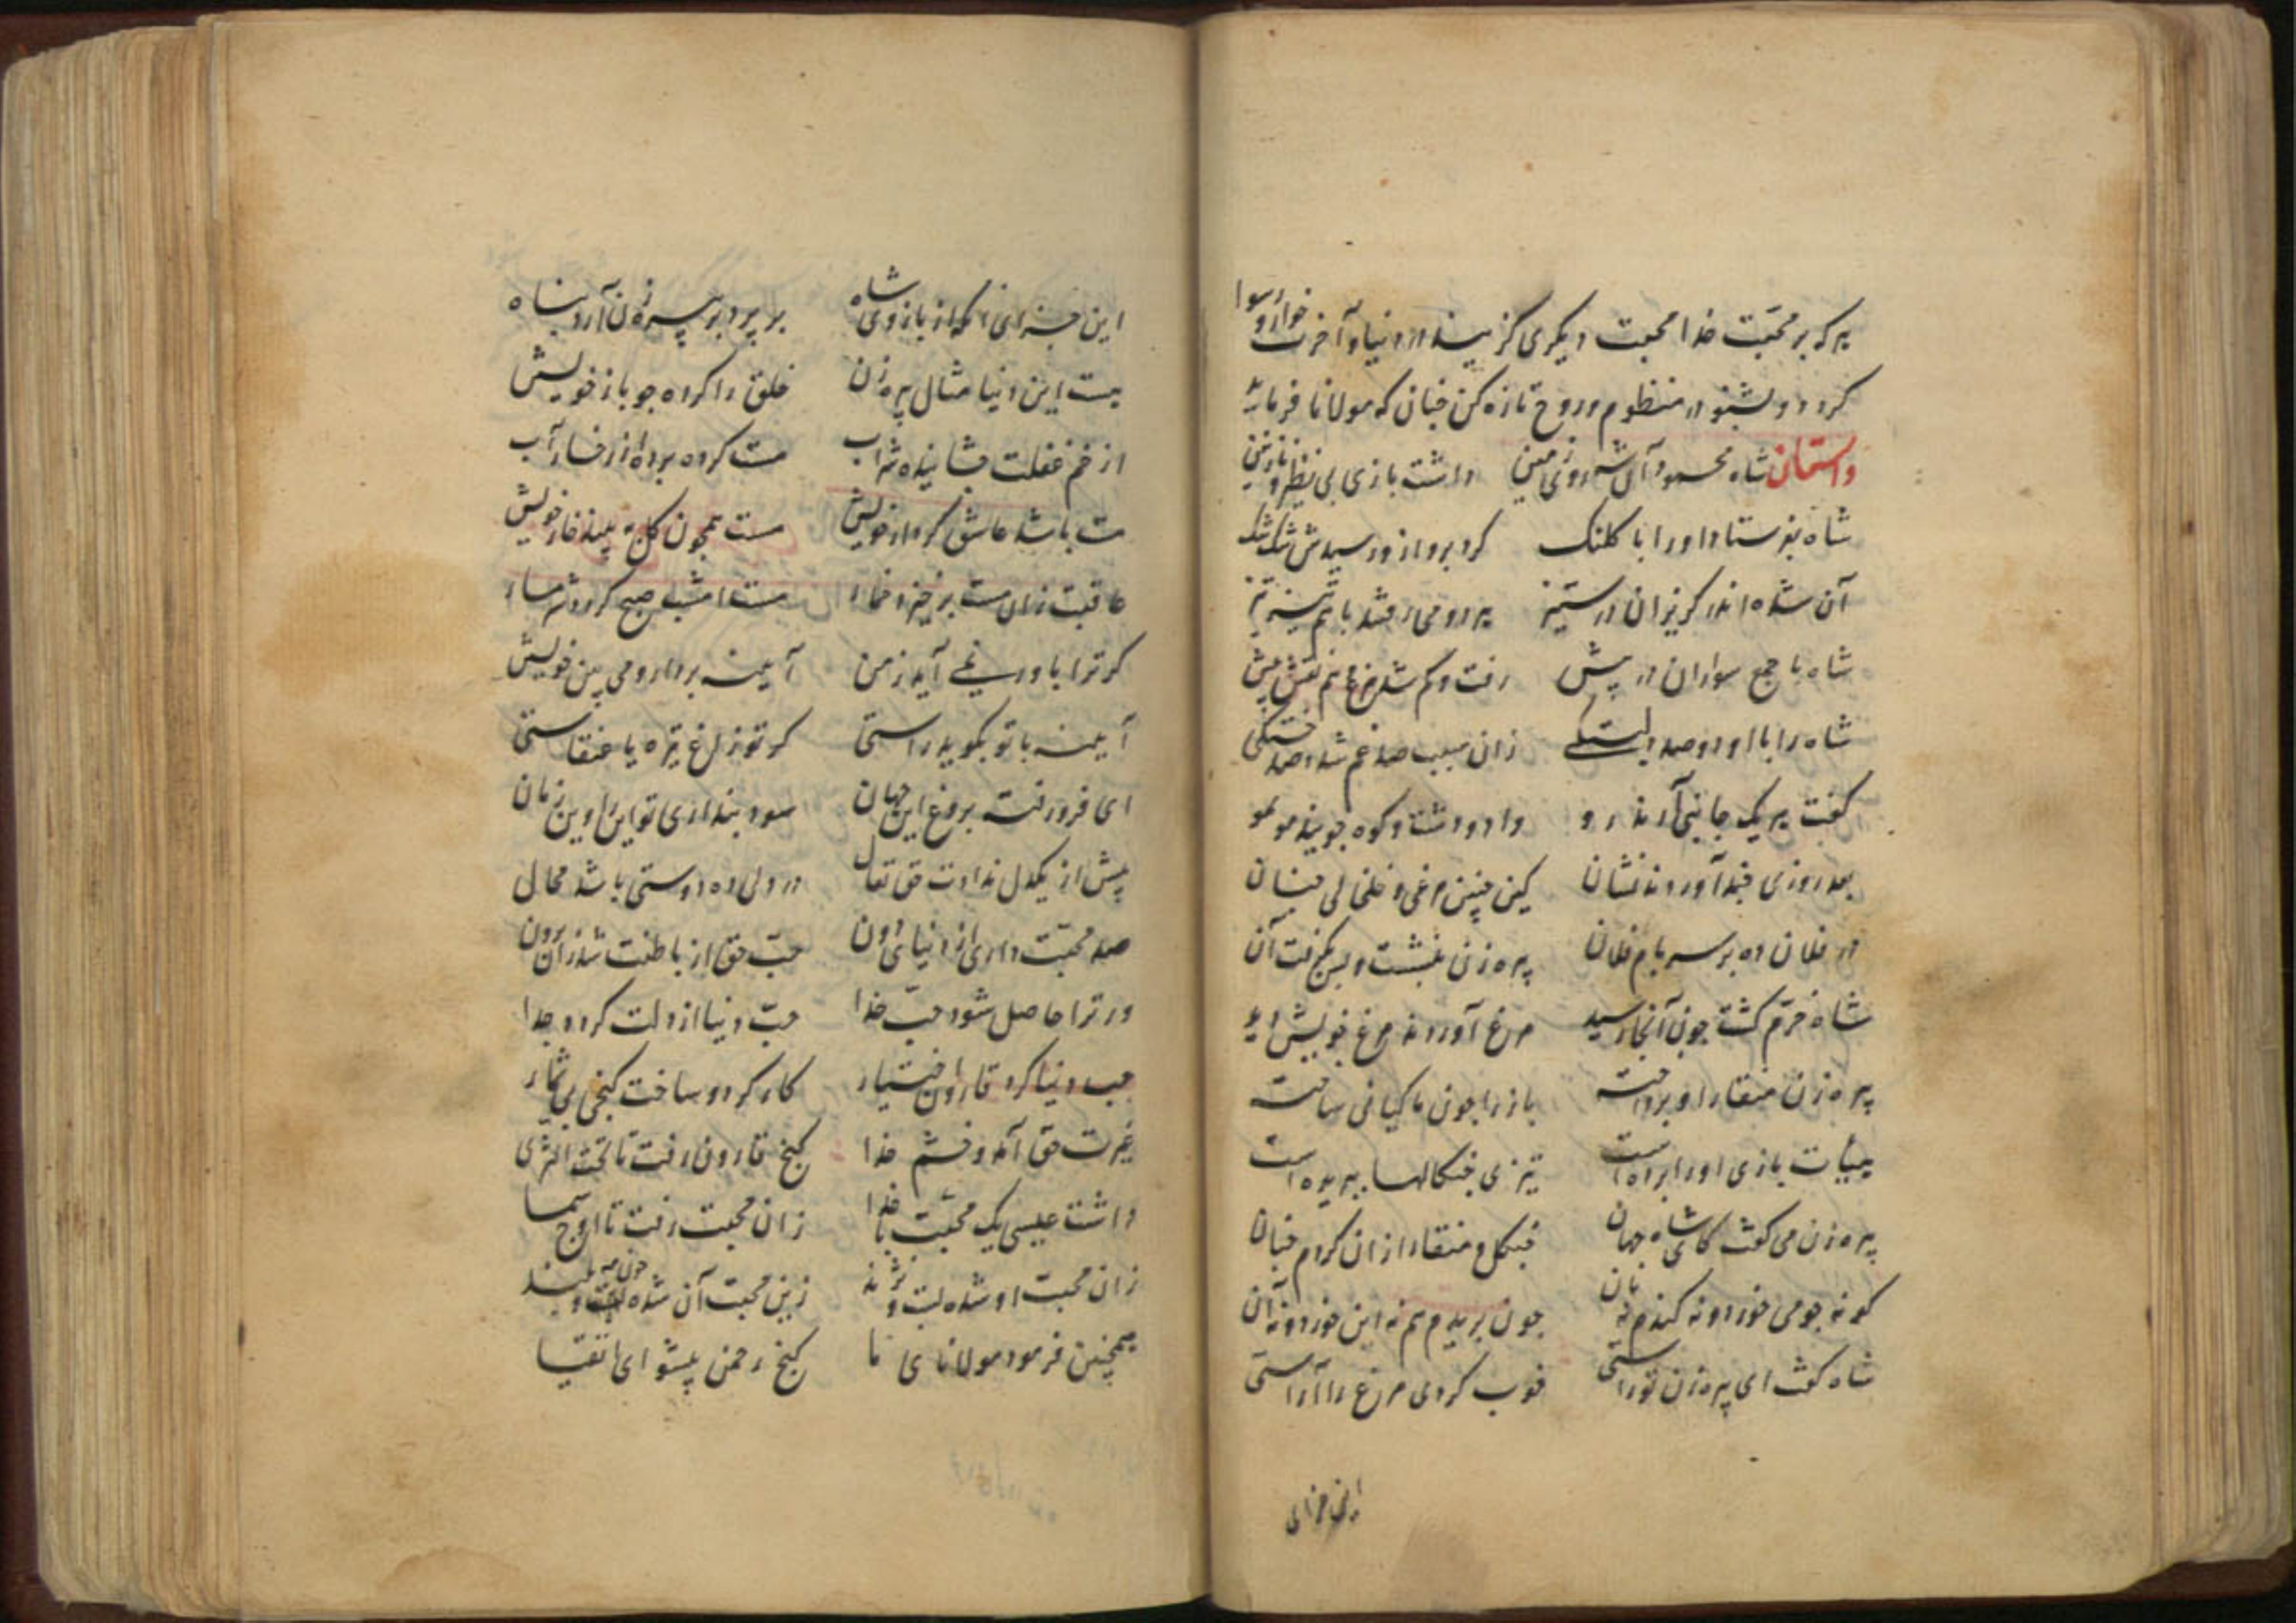 هرکه بر محبّت خدا محبت دیگری گزیند در دنیا و آخرت خوار و رسوا
گردد و بشنو در منظوم و روح تازه کن چنان که مولانا فرماید
داستان شاه محمود آن شه روی زمین داشت بازی بی نظیر و نازنین
شاه بفرستاد او را با کلنگ کرد پرواز و رسیدش تنگ تنگ
آن شده اندر گریزان در ستیز هر دو می رفتند با هم تیز تیز
شاه با جمع سواران در پیش رفت و گم شد مرغ هم نقش پیش
شاه را با او دوصد دلبستگی زان سبب صد غم شد و صد خستگی
گفت هر یک جانبی آرند رو وادود دشت و کوه جویند مو بمو
بعد روزی چند آوردند نشان کین چنین مرغی و خلخالی چنان
در فلان ده بر سر بام فلان پیره زن بنشست و بگرفت آن
شاه خرّم گشت چون آنجا رسید مرغ آوردند مرغ خویش دید
پیره زن منقار او برداخته باز را چون ماکیانی ساخته
هیبات بازی او را برده است تیزی چنگالها ببریده است
پیره زن می گفت کای شاه جهان چنگل و منقار از آن کردم چنان
کو نه جو می خورد و نه گندم نه نان چون بریدم هم نه این خورد و نه آن
شاه گفت ای پیره زن تو راستی خوب کردی مرغ را آراستی
این جزای
این جزای آنکه از بازوی شاه بر پرد بر پیره زن آرد پناه
هست این دنیا مثال پیره زن خلق را کرده چو باز خویش
از خم غفلت چشانیده شراب مست کرده برده از رخسار آب
مست باشد عاشق کردار خویش مست همچون گل نبیند خار خویش
عاقبت زان مست برخیزد خمار مست امشب صبح گردد شرمسار
گر ترا باور نمی آید ز من آینه بردار و می بین خویش
آینه با تو بگوید راستی گر تو زاغ تیره یا عنقاستی
ای فرو رفته بروغ این جهان سود پنداری تو این را وین زیان
بیش از یکدل ندادت حق تعال در دلی ده دوستی باشد محال
صد محبّت داری از دنیای دون حبّ حق از باطنت شد زان برون
ور ترا حاصل شود حبّ خدا حبّ دنیا از دلت گردد جدا
حب دنیا کرد قارون اختیار کار کرد و ساخت گنجی بی شمار
غیرت حق آمد و خشم خدا گنج قارون رفت تا تحت الثری
داشت عیسی یک محبّت با خدا زان محبت رفت تا اوج سما
زان محبت او شده پست و نژند زین محبت آن شده چون مه بلند
همچنین فرمود مولانای ما گنج رحمن پیشوای اتقیا